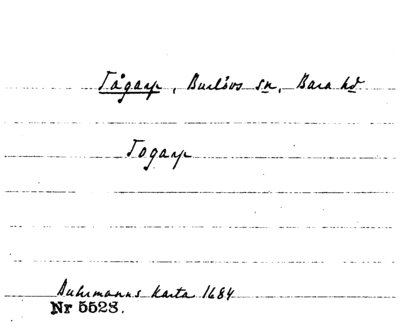 Tågarp, Burlövs sn, Bara hd
Togarp
Buhrmanns karta 1684
Nr 5523.